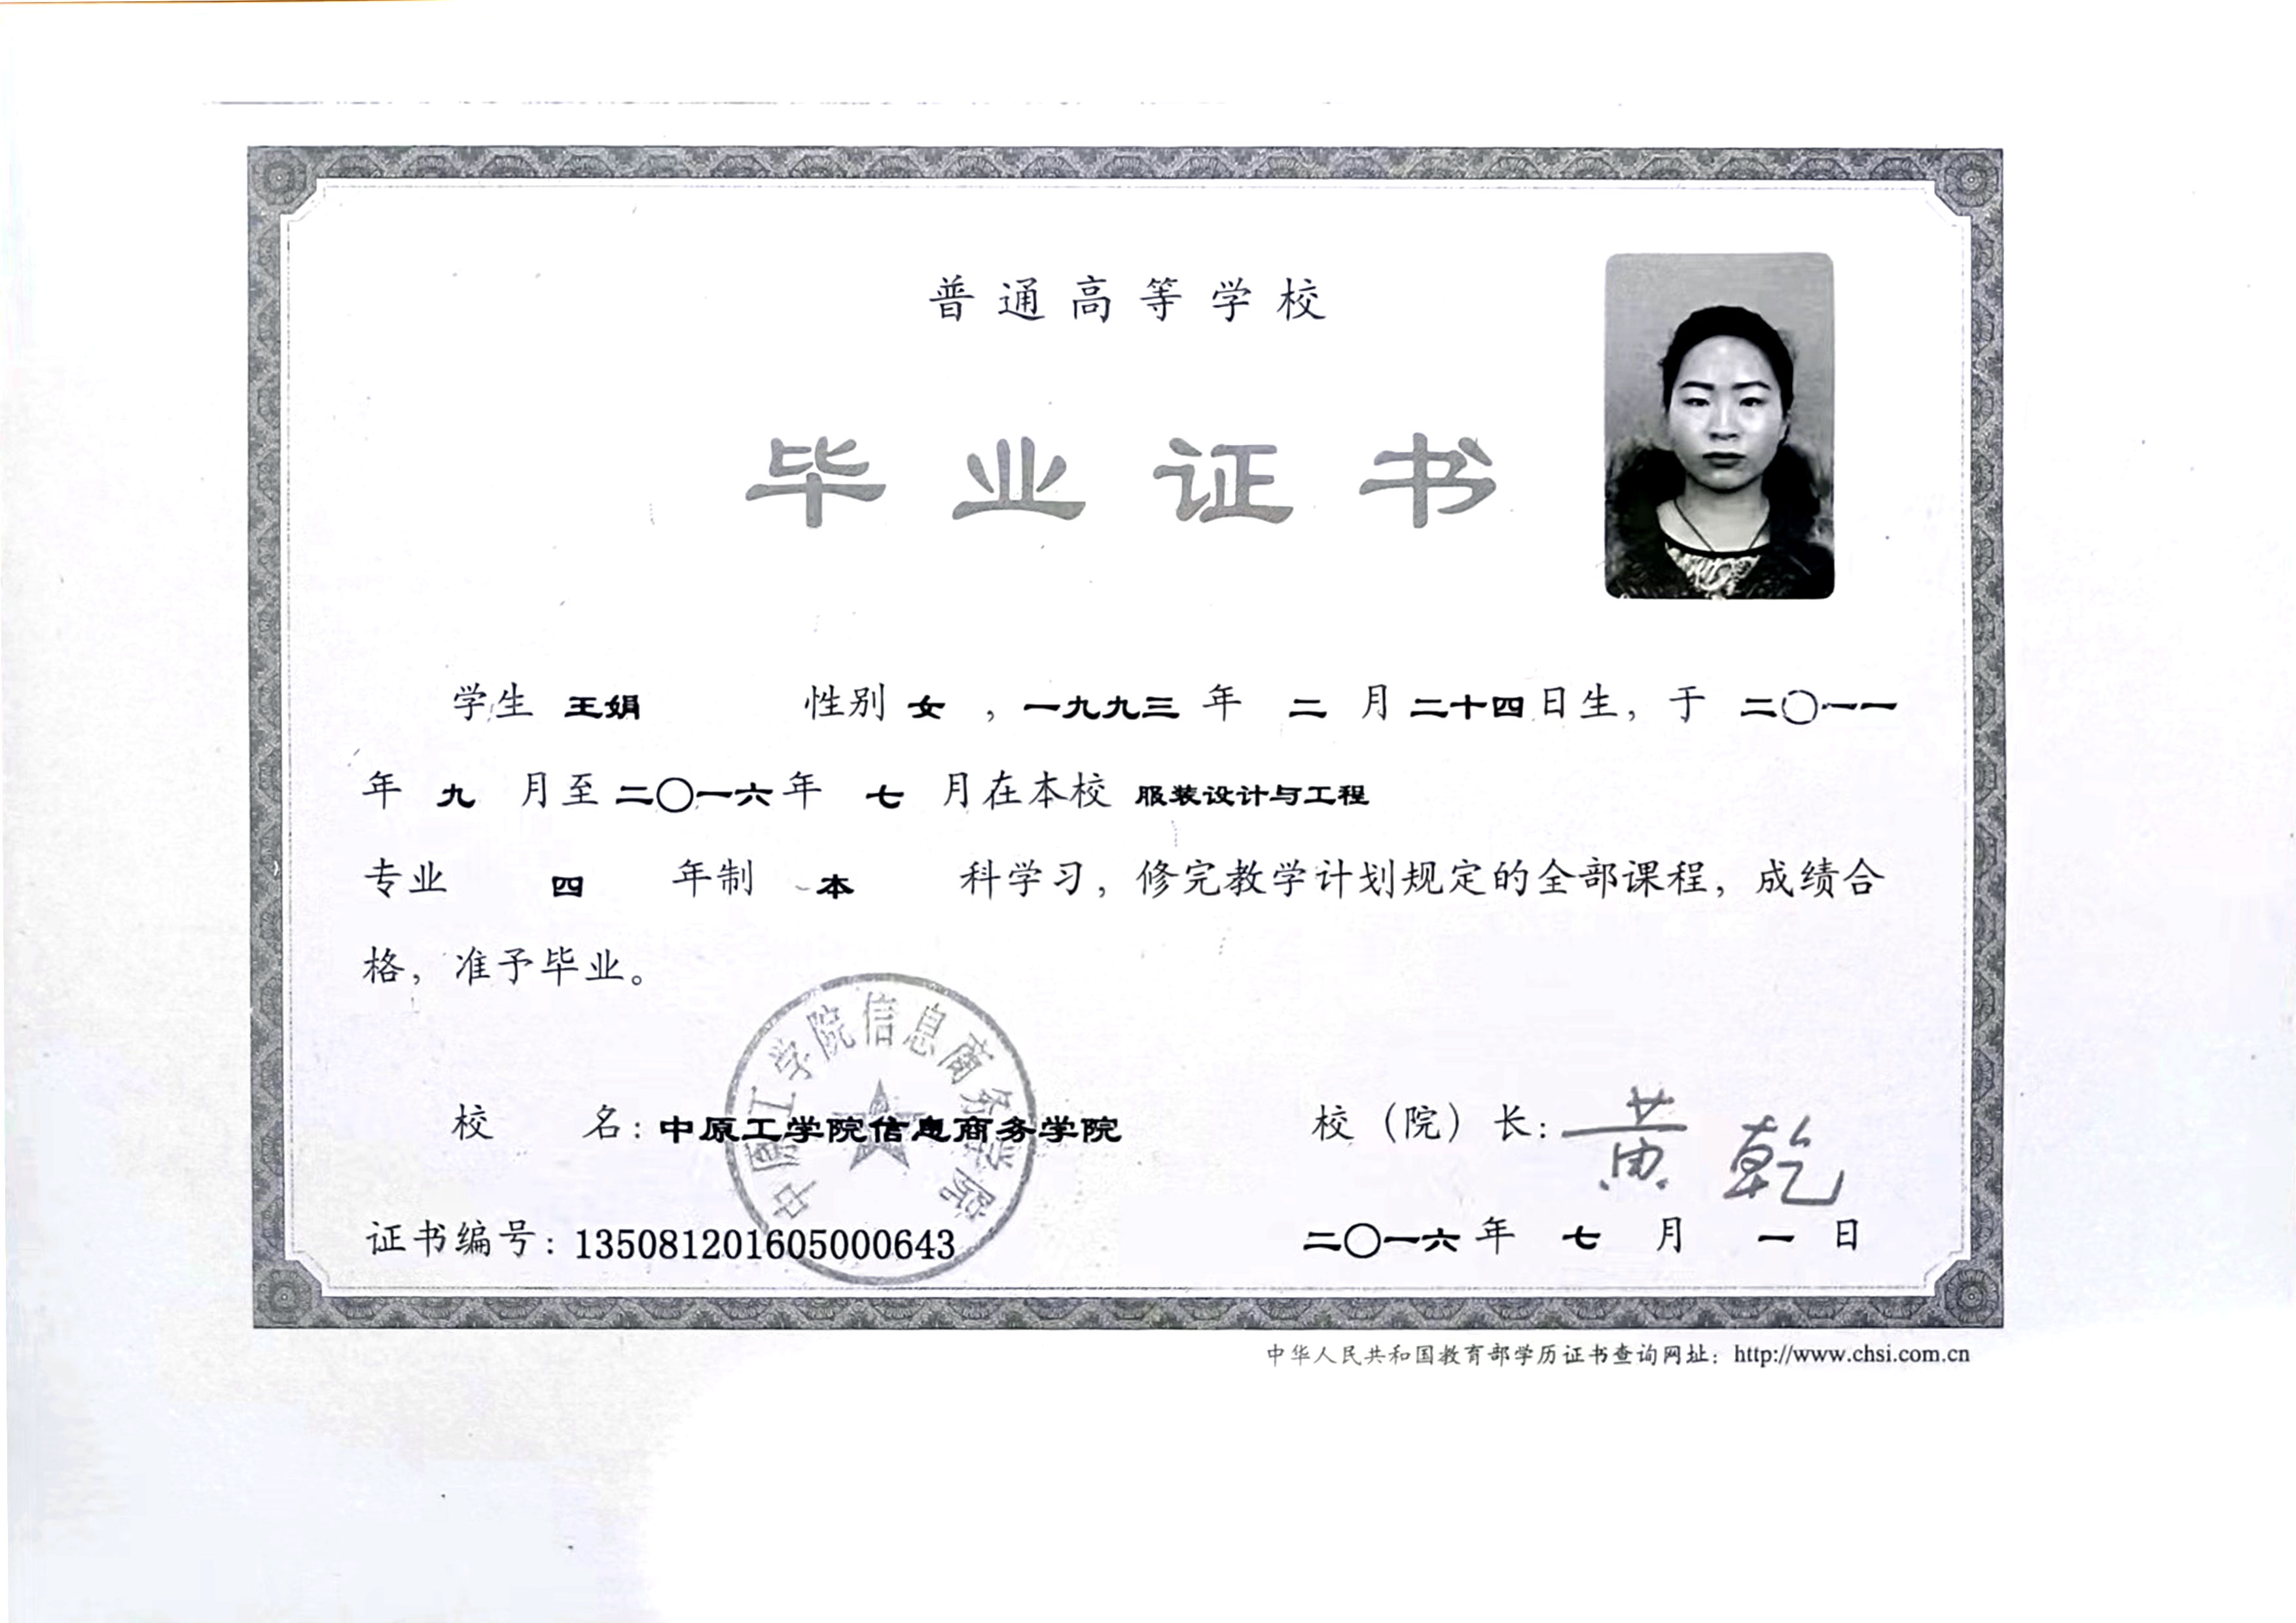 普通高等学校
毕业证书
学生 王娟 性别 女 ，一九九三 年 二 月 二十四日生，于 二〇一一
年 九 月至 二〇一六年 七 月在本校 服装设计与工程
专业 四 年制 本 科学习，修完教学计划规定的全部课程，成绩合
格，准予毕业。
中原工学院信息商务学院
校 名：中原工学院信息商务学院
校（院）长：黄乾
证书编号：135081201605000643
二〇一六年 七 月 一 日
中华人民共和国教育部学历证书查询网址：http://www.chsi.com.cn